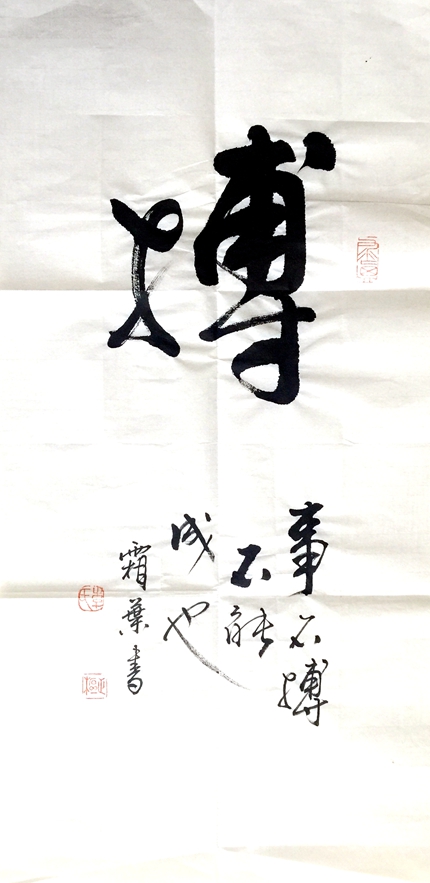 搏
事不搏
不能
成也
霜葉書